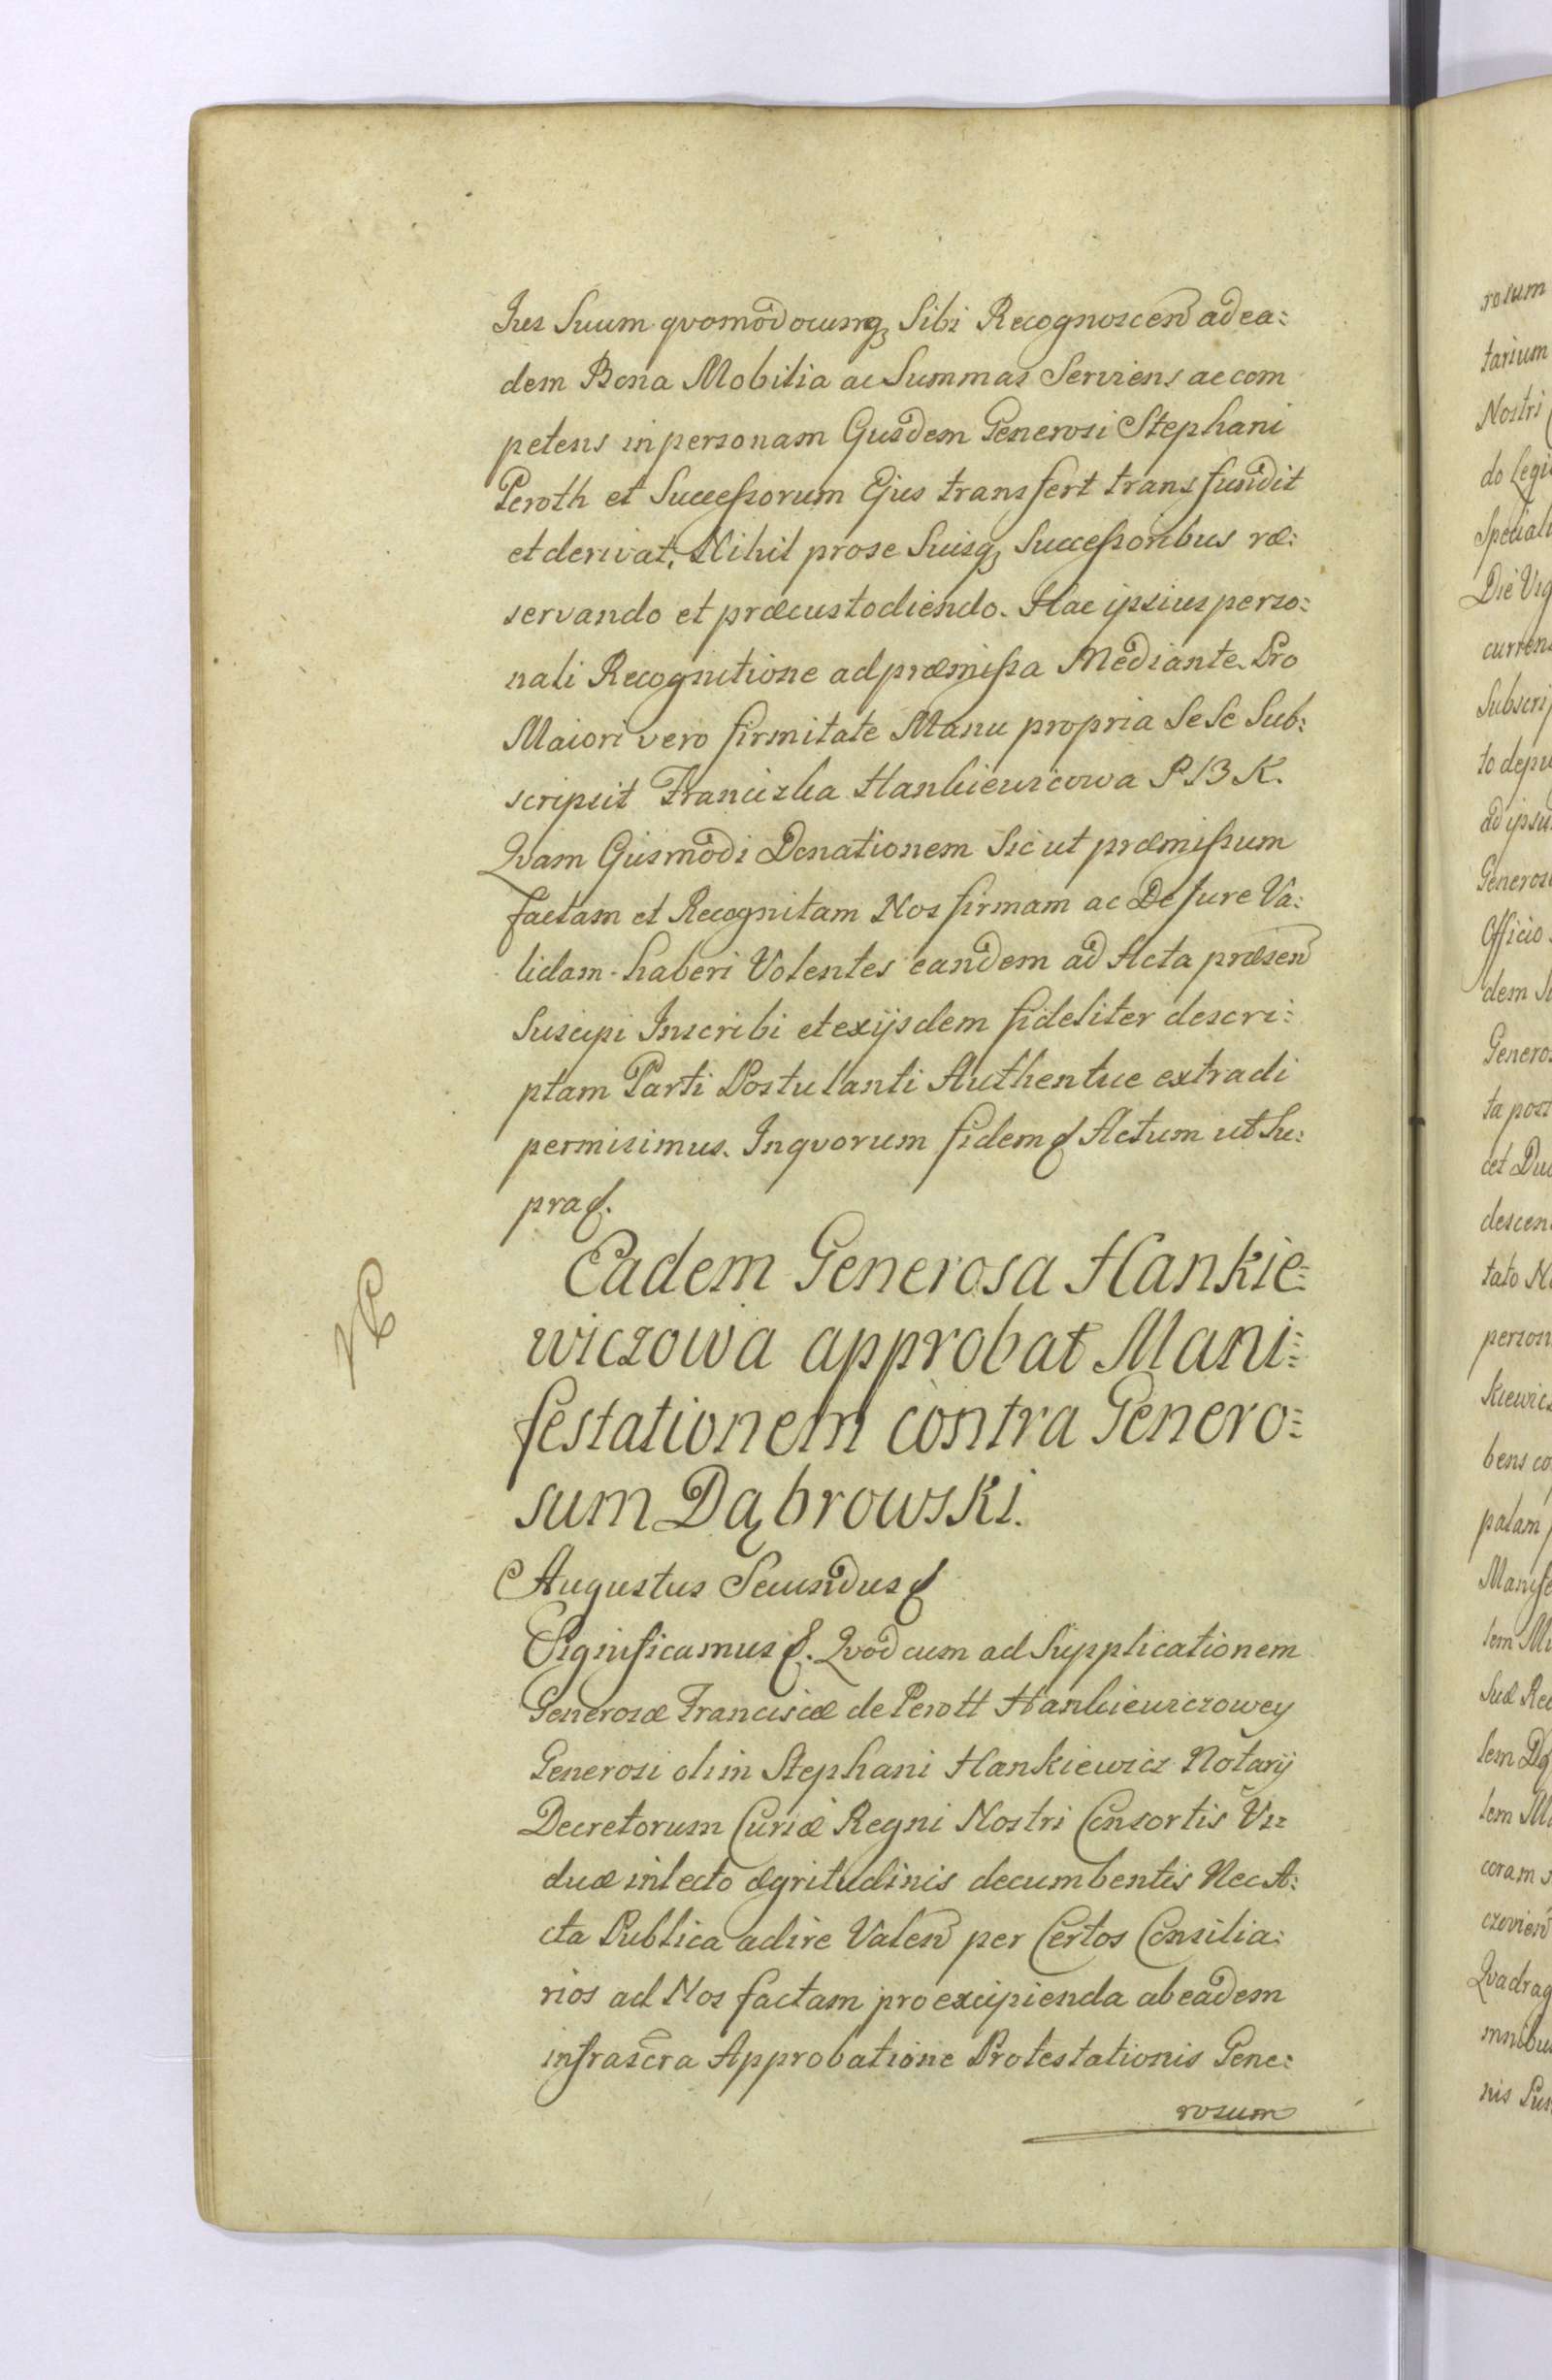 Jus Suum qvomodocunq, Sibi Recognoscen ad ea:
dem Bona Mobilia ac Summas Serviens ac com
petens in personam Ejusdem Generosi Stephani
Peroth et Successorum Ejus transfert transfundit
et derivat, Nihil pro se Suisq, Successoribus ræ:
servando et præcustodiendo. Hac ipsius perso:
nali Recognitione ad præmissa Mediante. Pro
Maiori vero firmitate Manu propria Se Se Sub:
scripsit Franciszka Hankiewicowa P S B K.
Qvam Ejusmodi Donationem Sic ut præmissum
factam et Recognitam Nos firmam ac De Jure Va:
lidam haberi Volentes eandem ad Acta præsen
Suscipi Inscribi et ex ijsdem fideliter descri:
ptam Parti Postulanti Authentice extradi
permisimus. In qvorum fidem Actum ut Su:
pra
Eadem Generosa Hankie:
wiczowa approbat Mani:
festationem contra Genero:
sum Dąbrowski.
Augustus Secundus
Significamus Qvod cum ad Supplicationem
Generosæ Franciscæ de Perott Hankiewiczowey
Generosi olim Stephani Hankiewicz Notarij
Decretorum Curiæ Regni Nostri Consortis Vi:
duæ in lecto ægritudinis decumbentis Nec A:
cta Publica adire Valen per Certos Consilia:
rios ad Nos factam pro excipienda ab eadem
infrascra Approbatione Protestationis Gene:
rosum
rosum
tarium
Nostri
do Legi
Speciali
Die Vig
curren
Subscrip
to depu
ad ipsu
Generos
Officio
dem
Genero
ta post
cet Du
descen
tato N
person
kiewic
bens co
palam
Manife
lem
Suæ Rec
lem
lem
coram
czovien
Qvadrag
mnibu
nis